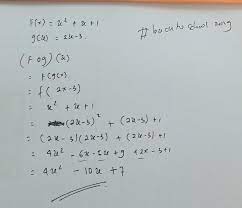 f(x) = x² + x + 1
g(x) = 2x-3
# back to school song
(f o g) (x)
= f(g(x)
= f( 2x-3)
= x² + x + 1
= (2x-3)² + (2x-3) +1
= (2x-3)(2x-3) + (2x-3) +1
= 4x² - 6x - 6x + 9 + 2x - 3+1
= 4x² - 10x + 7